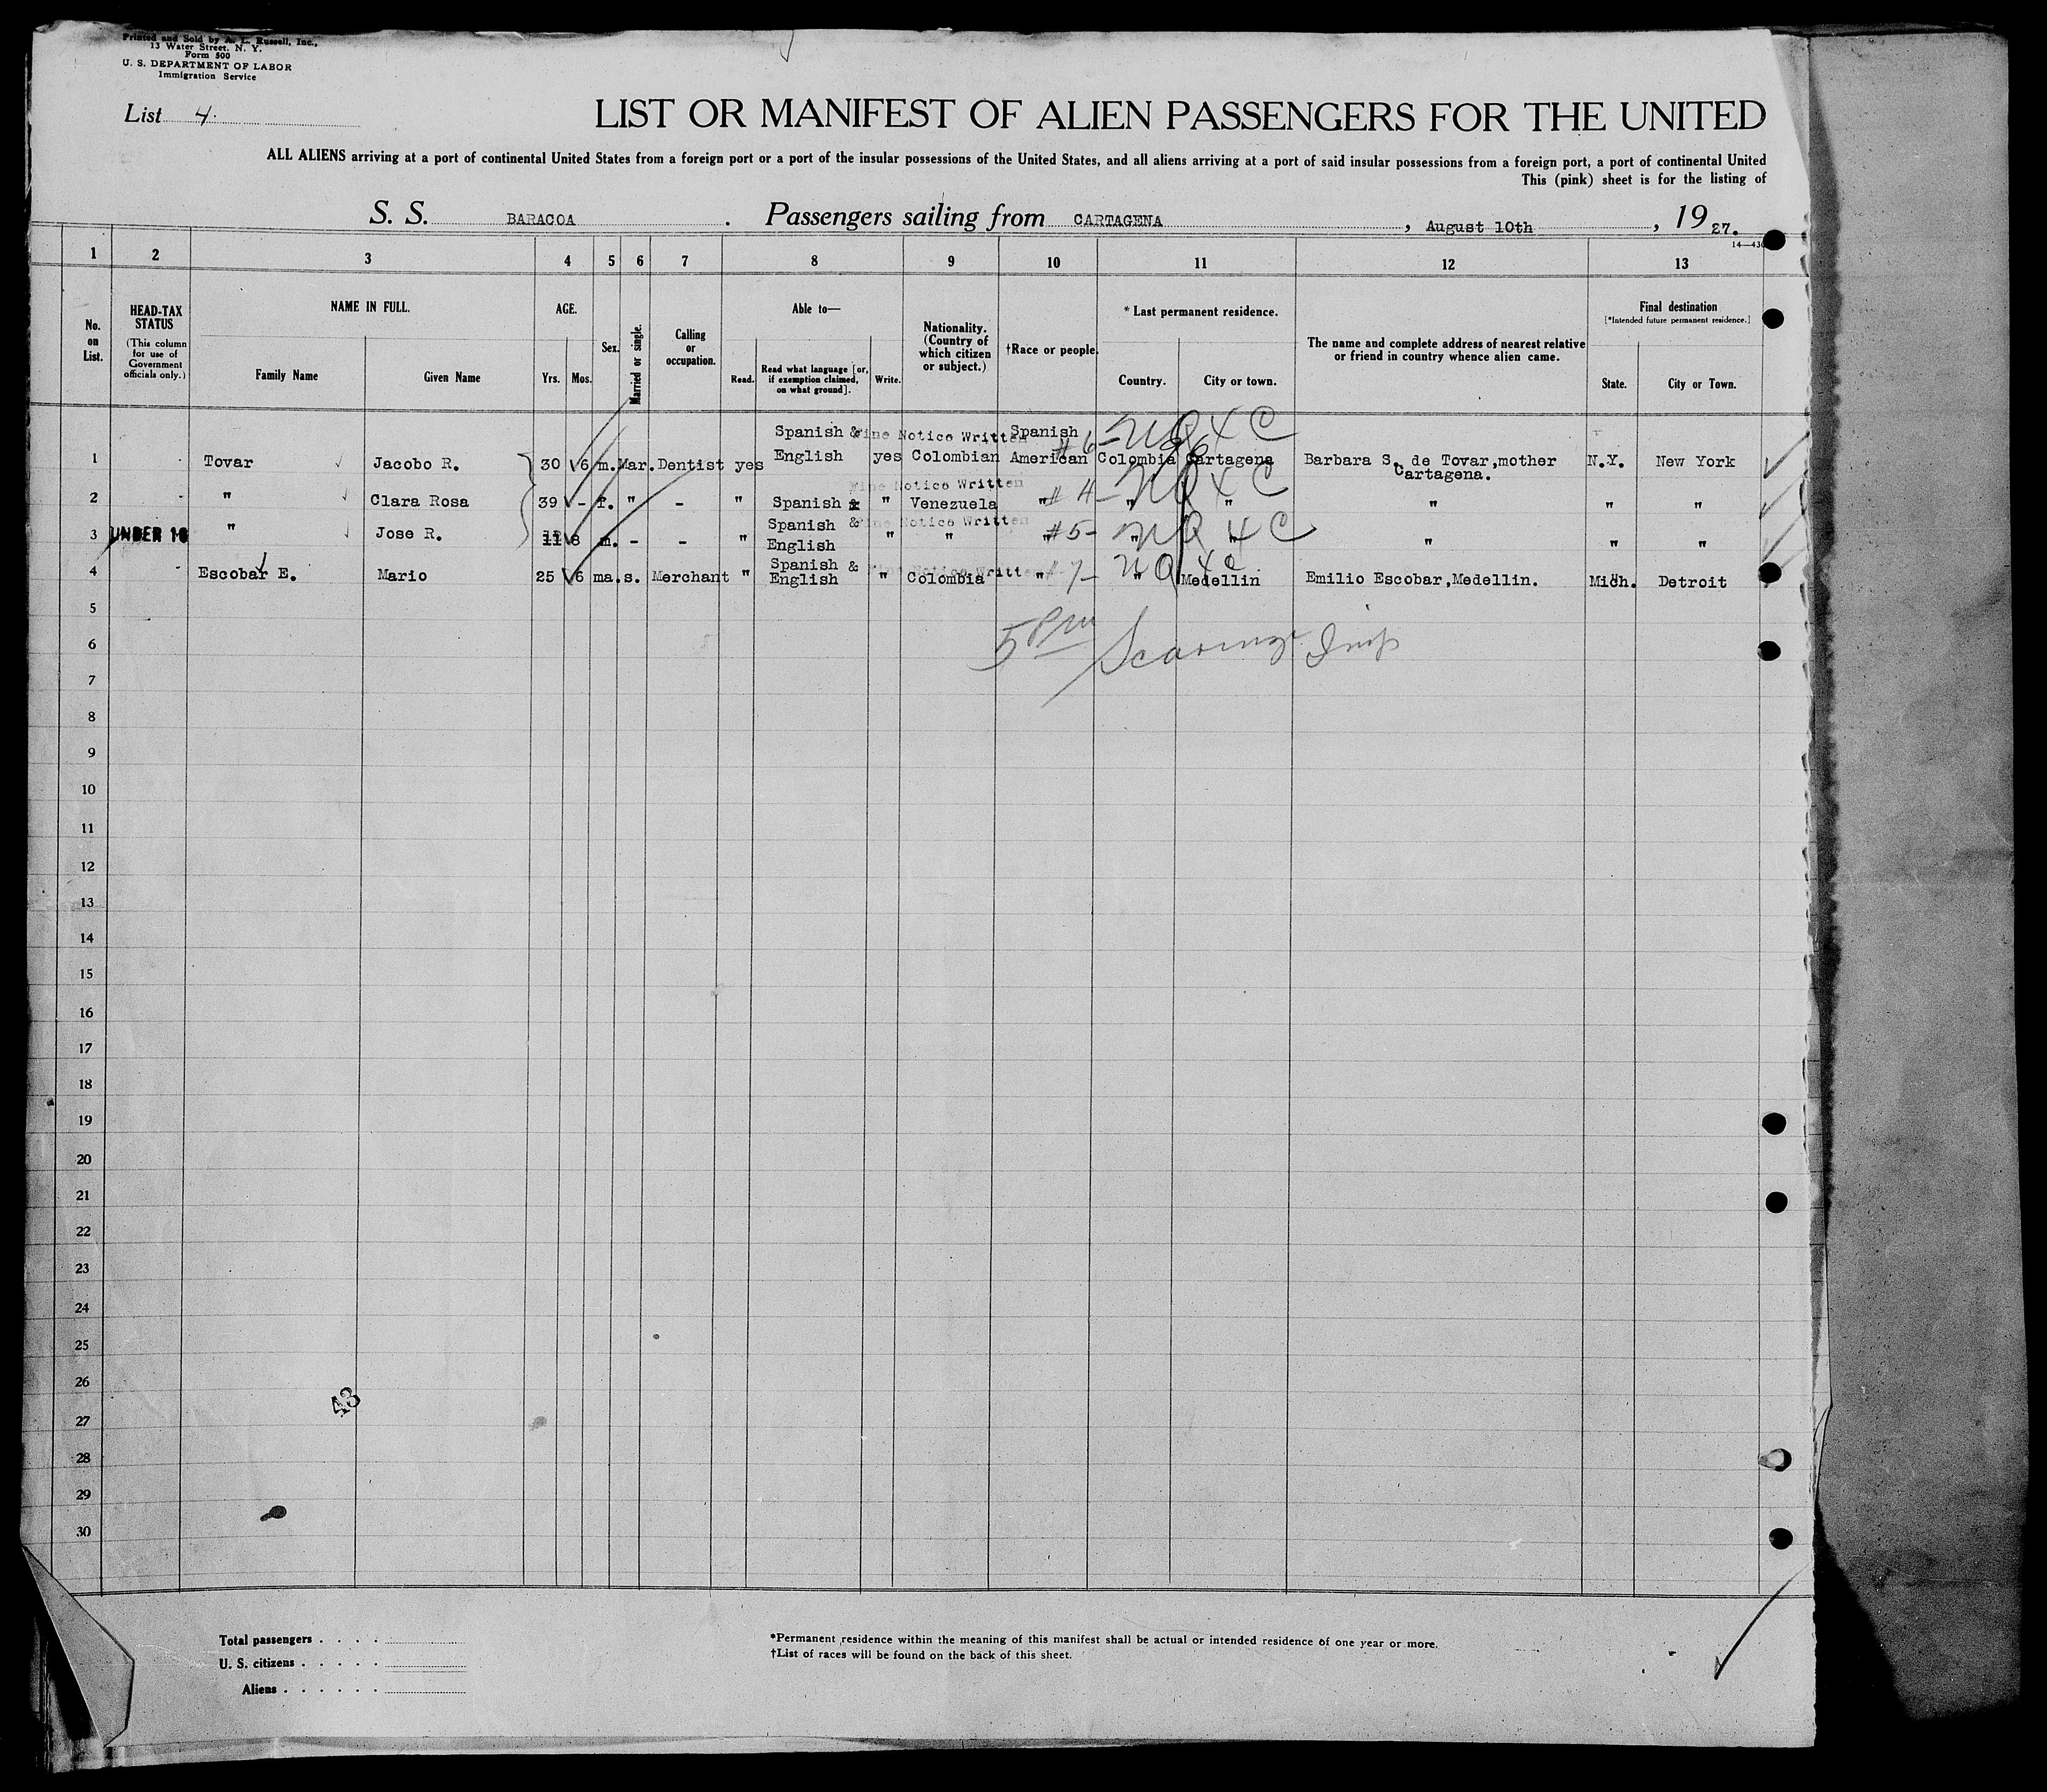 Printed and Sold by A. L. Russell, Inc.,
13 Water Street, N. Y.
Form 500
U. S. DEPARTMENT OF LABOR
Immigration Service
List 4.
LIST OR MANIFEST OF ALIEN PASSENGERS FOR THE UNITED
ALL ALIENS arriving at a port of continental United States from a foreign port or a port of the insular possessions of the United States, and all aliens arriving at a port of said insular possessions from a foreign port, a port of continental United
This (pink) sheet is for the listing of
S. S. BARACOA . Passengers sailing from CARTAGENA , August 10th , 19 27.
1 2 3 4 5 6 7 8 9 10 11 12 13
No. on List.
HEAD-TAX STATUS
(This column for use of Government officials only.)
NAME IN FULL.
Family Name Given Name
AGE.
Yrs. Mos.
Sex.
Married or single.
Calling or occupation.
Able to—
Read. Read what language [or, if exemption claimed, on what ground]. Write.
Nationality. (Country of which citizen or subject.)
†Race or people.
* Last permanent residence.
Country. City or town.
The name and complete address of nearest relative or friend in country whence alien came.
Final destination
[*Intended future permanent residence.]
State. City or Town.
1 Tovar Jacobo R. 30 6 m. Mar. Dentist yes Spanish & English yes Colombian Spanish American Colombia Cartagena Barbara S. de Tovar, mother Cartagena. N.Y. New York
Fine Notice Written #6- NQ 4 C
2 " Clara Rosa 39 - f. " - " Spanish & " Venezuela " " " " " "
Fine Notice Written #4- NQ 4 C
3 UNDER 16 " Jose R. 11 8 m. - - " Spanish & English " " " " " " " "
Fine Notice Written #5- NQ 4 C
4 Escobar E. Mario 25 6 ma. s. Merchant " Spanish & English " Colombia " " Medellin Emilio Escobar, Medellin. Mich. Detroit
Fine Notice Written #7- NQ 4C
5
5 PM
6
7
8
9
10
11
12
13
14
15
16
17
18
19
20
21
22
23
24
25
26
43
27
28
29
30
Total passengers . . . .
U. S. citizens . . . . .
Aliens . . . . . .
*Permanent residence within the meaning of this manifest shall be actual or intended residence of one year or more.
†List of races will be found on the back of this sheet.